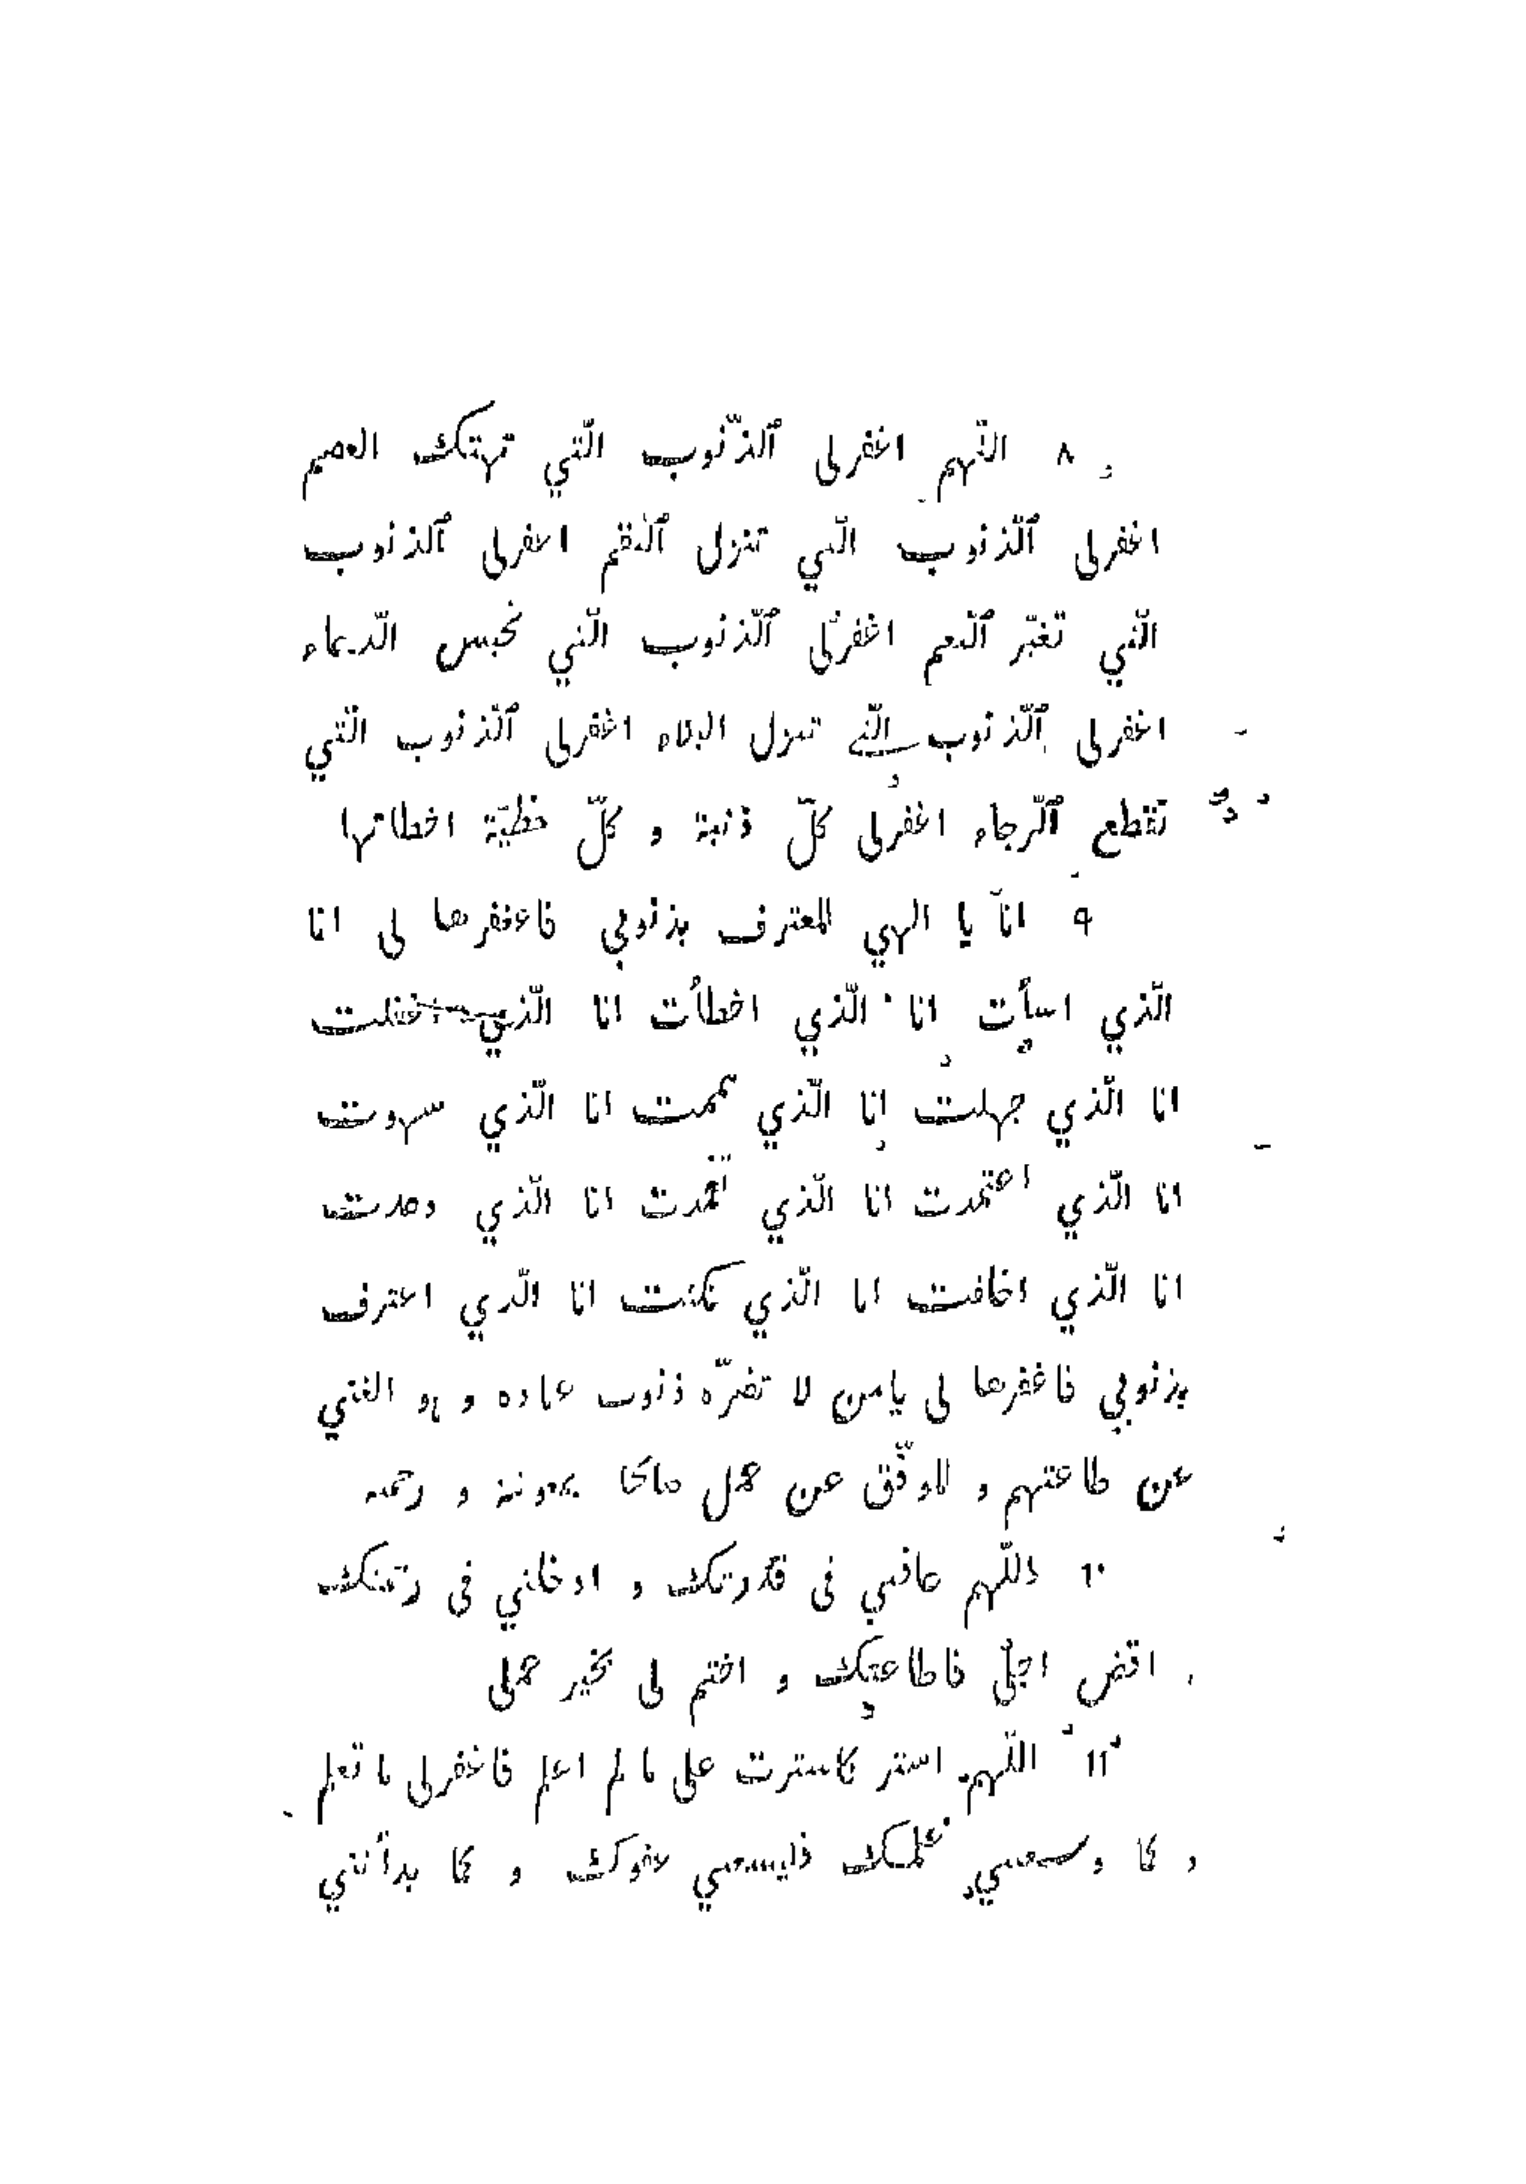 ٨ اللّهم اغفرلى ٱلذّنوب الّتي تهتك العصم
اغفرلى ٱلّذنوب الّتي تنزل ٱلنقم اغفرلى ٱلذنوب
الّتي تغيّر ٱلّنعم اغفرلى ٱلّذنوب الّتي تحبس الّدعاء
اغفرلى ٱلّذنوب الّتي تنزل البلاء اغفرلى ٱلّذنوب الّتي
تقطع ٱلّرجاء اغفرلى كلّ ذنبة و كلّ خطيّة اخطاتها
٩ انا يا الهي المعترف بذنوبي فاغفرها لى انا
الّذي اسأت انا الّذي اخطأت انا الّذي اغفلت
انا الّذي جهلت انا الّذي هممت انا الّذي سهوت
انا الّذي اعتمدت انا الّذي تعّمدت انا الّذي وعدت
انا الّذي اخلفت انا الّذي نكثت انا الّذي اعترف
بذنوبي فاغفرها لى يا من لا تضرّه ذنوب عباده و هو الغني
عن طاعتهم و الموفّق عن عمل صالحا بمعونته و رحمته
١٠ اللّهم عافني فى قدرتك و ادخلني فى رحمتك
اقض اجلى فاطاعتك و اختم لى بخير عملى
١١ اللّهم استر كاسترت على ما لم اعلم فاغفرلى ما تعلم
و كما وسعني علمك فليسعني عفوك و كما بدأتني